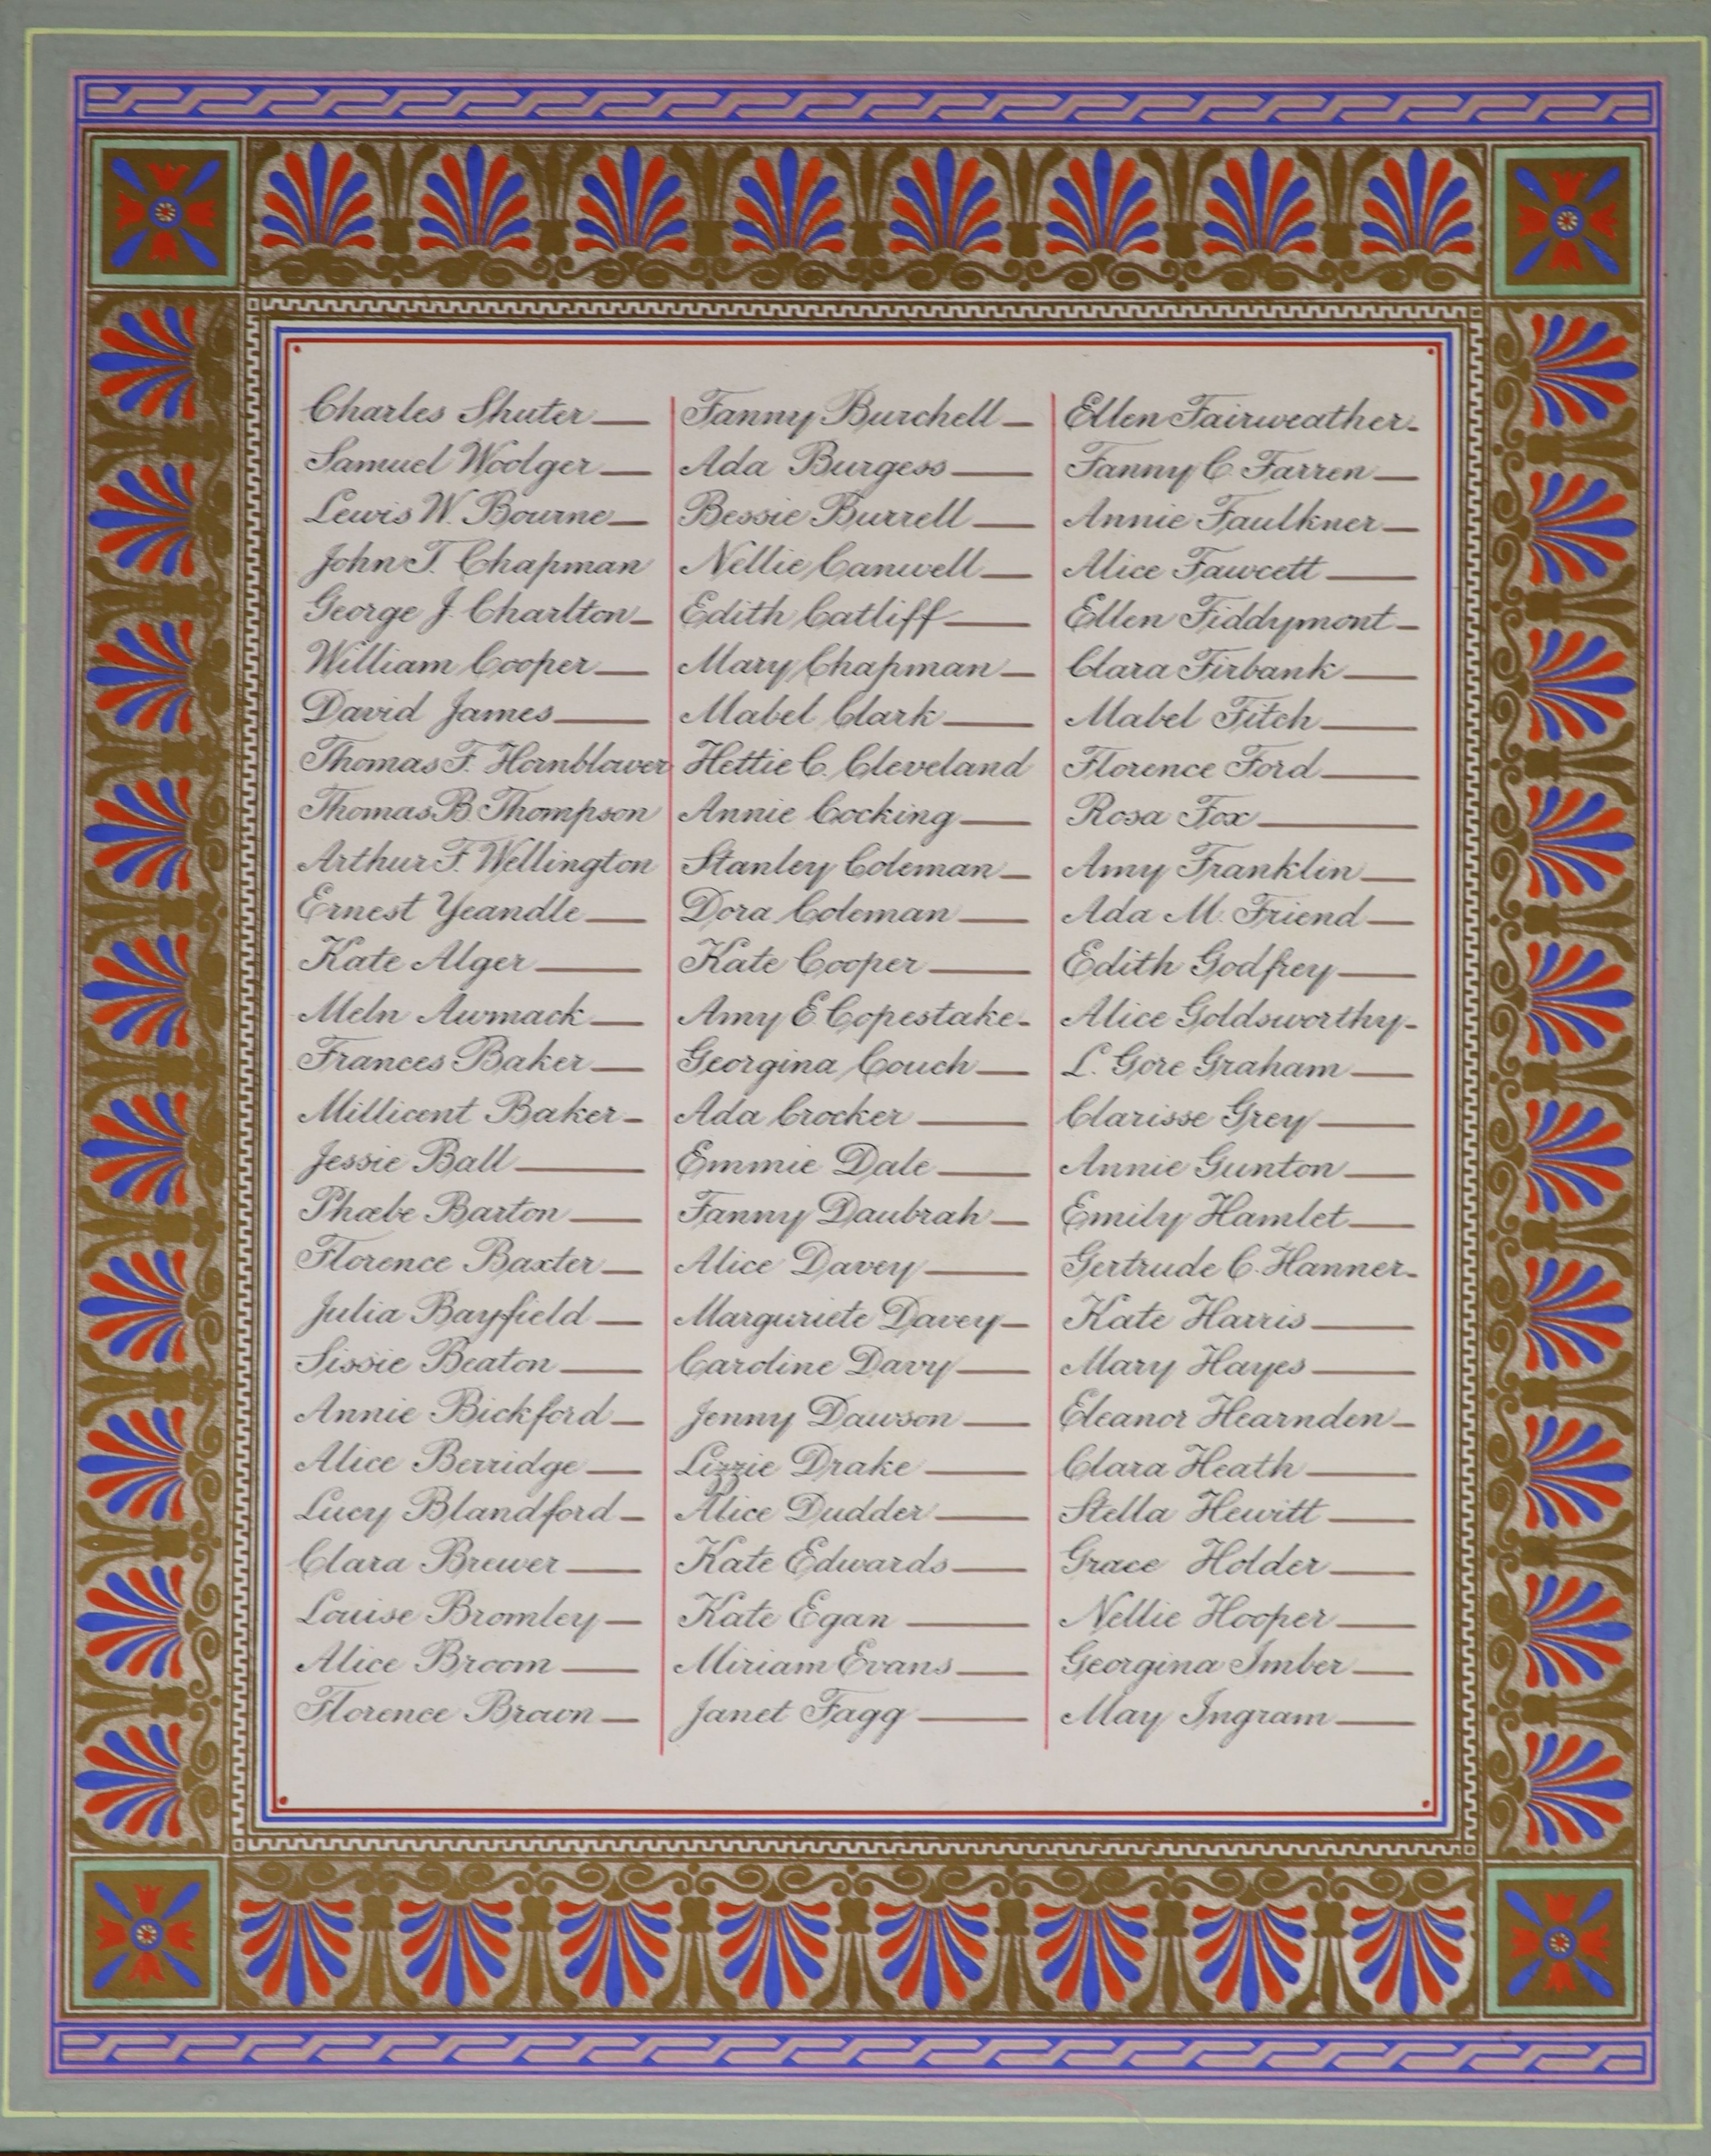 Charles Shuter
Samuel Woolger
Lewis W. Bourne
John T. Chapman
George J. Charlton
William Cooper
David James
Thomas F. Hornblower
Thomas B. Thompson
Arthur F. Wellington
Ernest Yeandle
Kate Alger
Meln Awmack
Frances Baker
Millicent Baker
Jessie Ball
Phœbe Barton
Florence Baxter
Julia Bayfield
Sissie Beaton
Annie Bickford
Alice Berridge
Lucy Blandford
Clara Brewer
Louise Bromley
Alice Broom
Florence Brown
Fanny Burchell
Ada Burgess
Bessie Burrell
Nellie Canwell
Edith Catliff
Mary Chapman
Mabel Clark
Hettie C. Cleveland
Annie Cocking
Stanley Coleman
Dora Coleman
Kate Cooper
Amy E Copestake
Georgina Couch
Ada Crocker
Emmie Dale
Fanny Daubrah
Alice Davey
Marguriete Davey
Caroline Davy
Jenny Dawson
Lizzie Drake
Alice Dudder
Kate Edwards
Kate Egan
Miriam Evans
Janet Fagg
Ellen Fairweather
Fanny C. Farren
Annie Faulkner
Alice Fawcett
Ellen Fiddymont
Clara Firbank
Mabel Fitch
Florence Ford
Rosa Fox
Amy Franklin
Ada M. Friend
Edith Godfrey
Alice Goldsworthy
L. Gore Graham
Clarisse Grey
Annie Gunton
Emily Hamlet
Gertrude C. Hanner
Kate Harris
Mary Hayes
Eleanor Hearnden
Clara Heath
Stella Hewitt
Grace Holder
Nellie Hooper
Georgina Imber
May Ingram